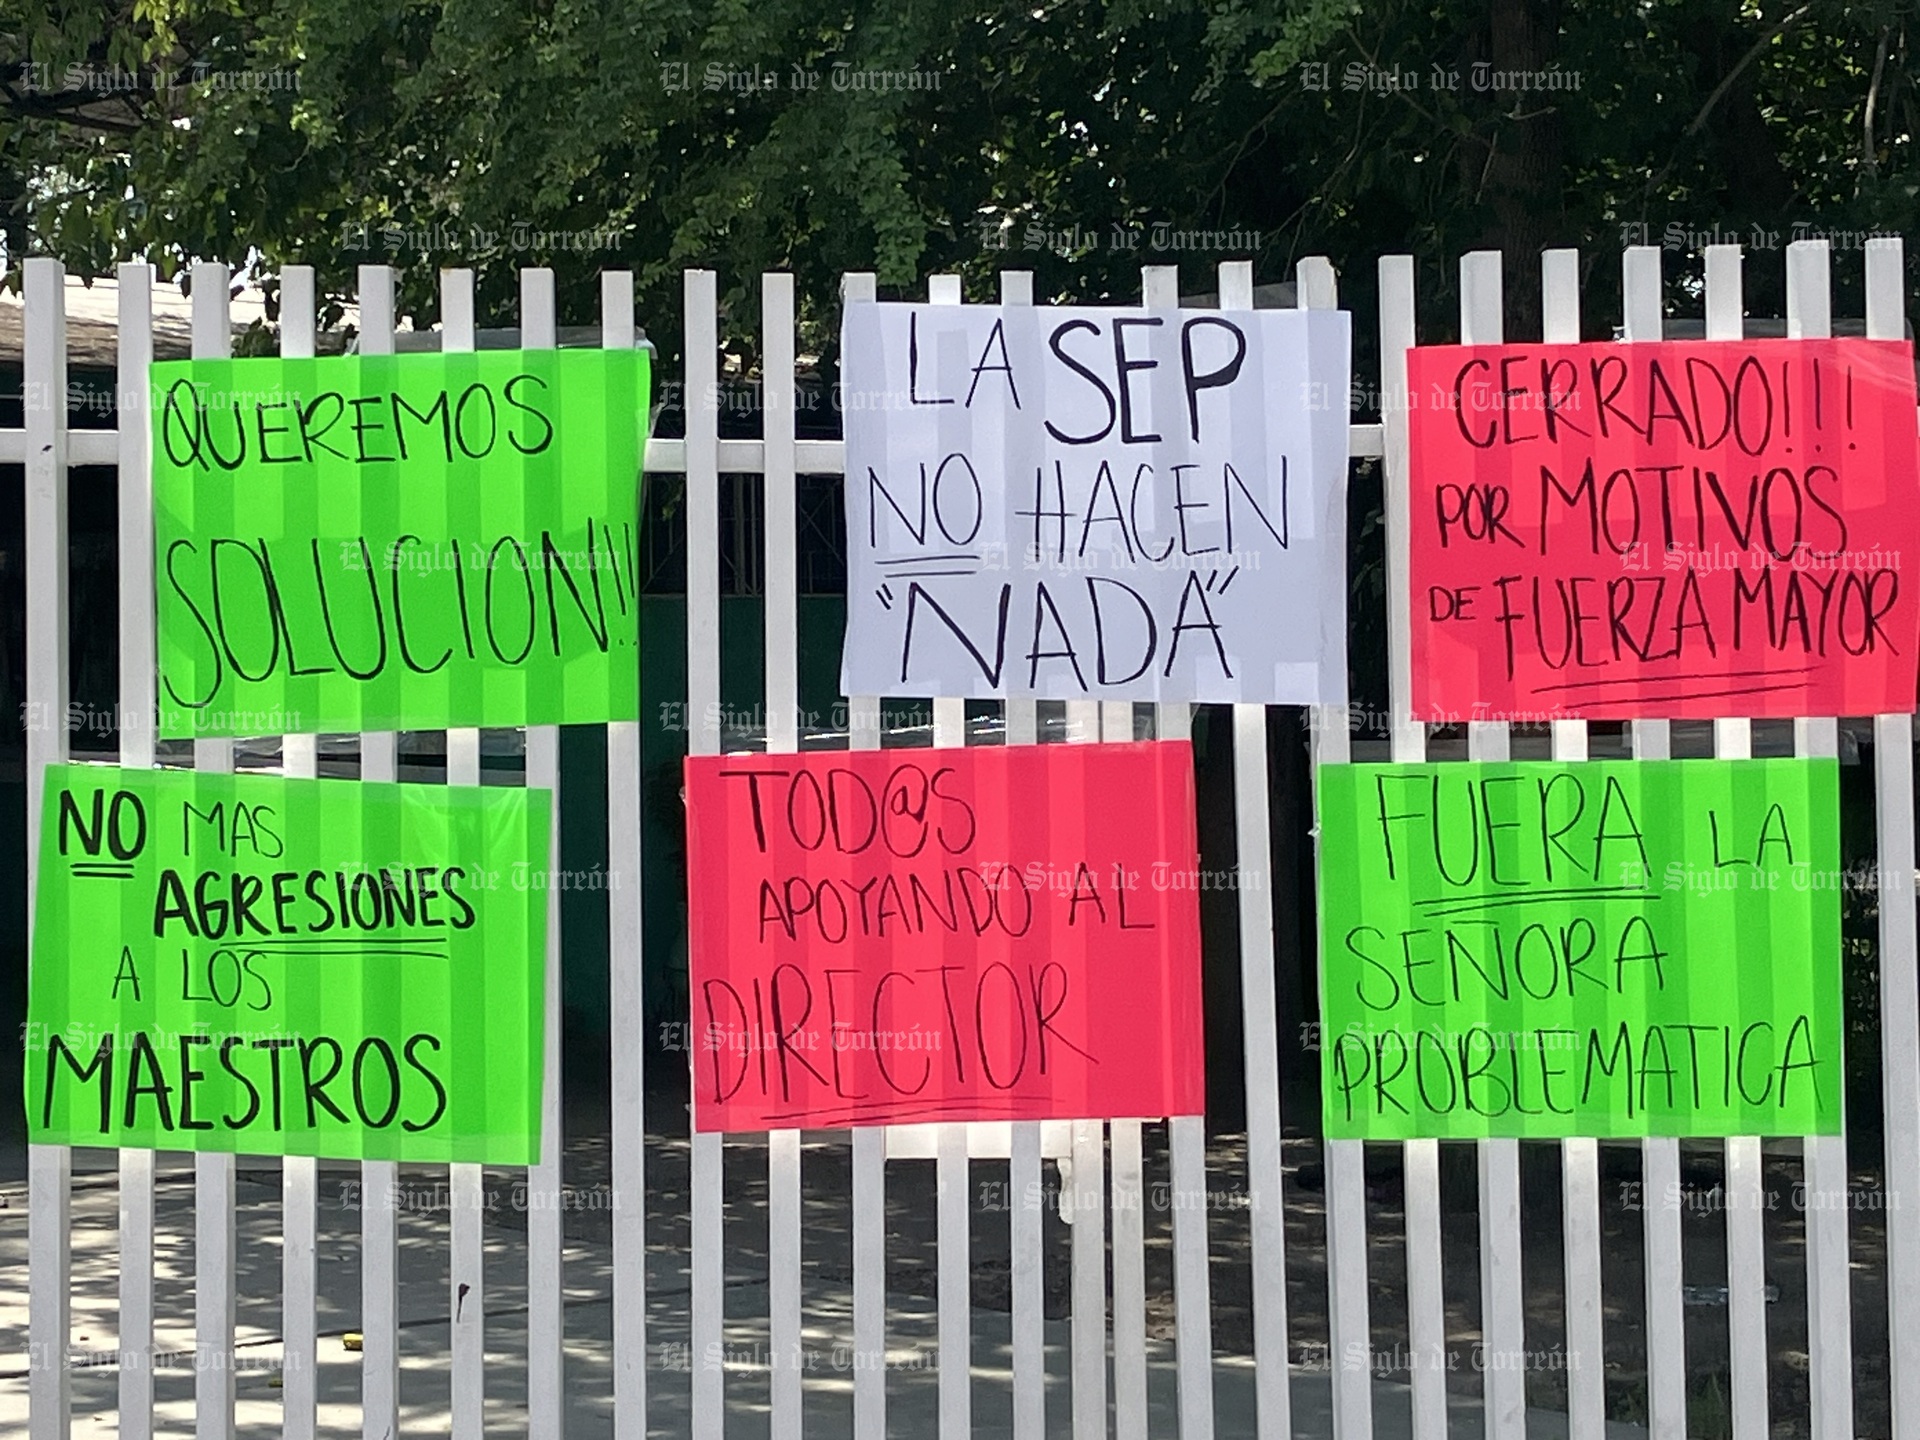 QUEREMOS
SOLUCION!!
LA SEP
NO HACEN
"NADA"
CERRADO!!!
POR MOTIVOS
DE FUERZA MAYOR
NO MAS
AGRESIONES
A LOS
MAESTROS
TOD@S
APOYANDO AL
DIRECTOR
FUERA LA
SEÑORA
PROBLEMATICA
El Siglo de Torreón